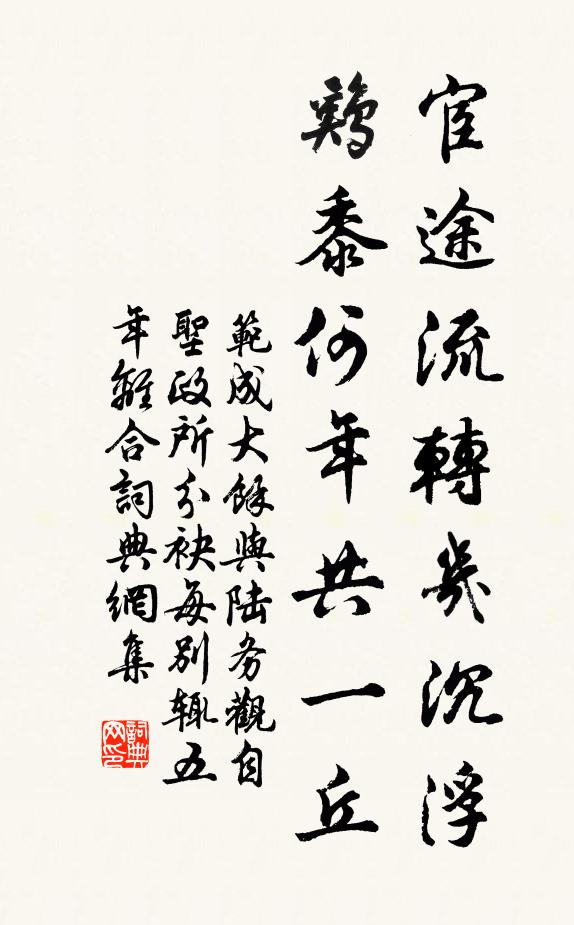 宦途流轉幾沉浮
鷄黍何年共一丘
範成大餘與陆务觀自
聖政所分袂每别輒五
年離合詞典網集
詞典網印